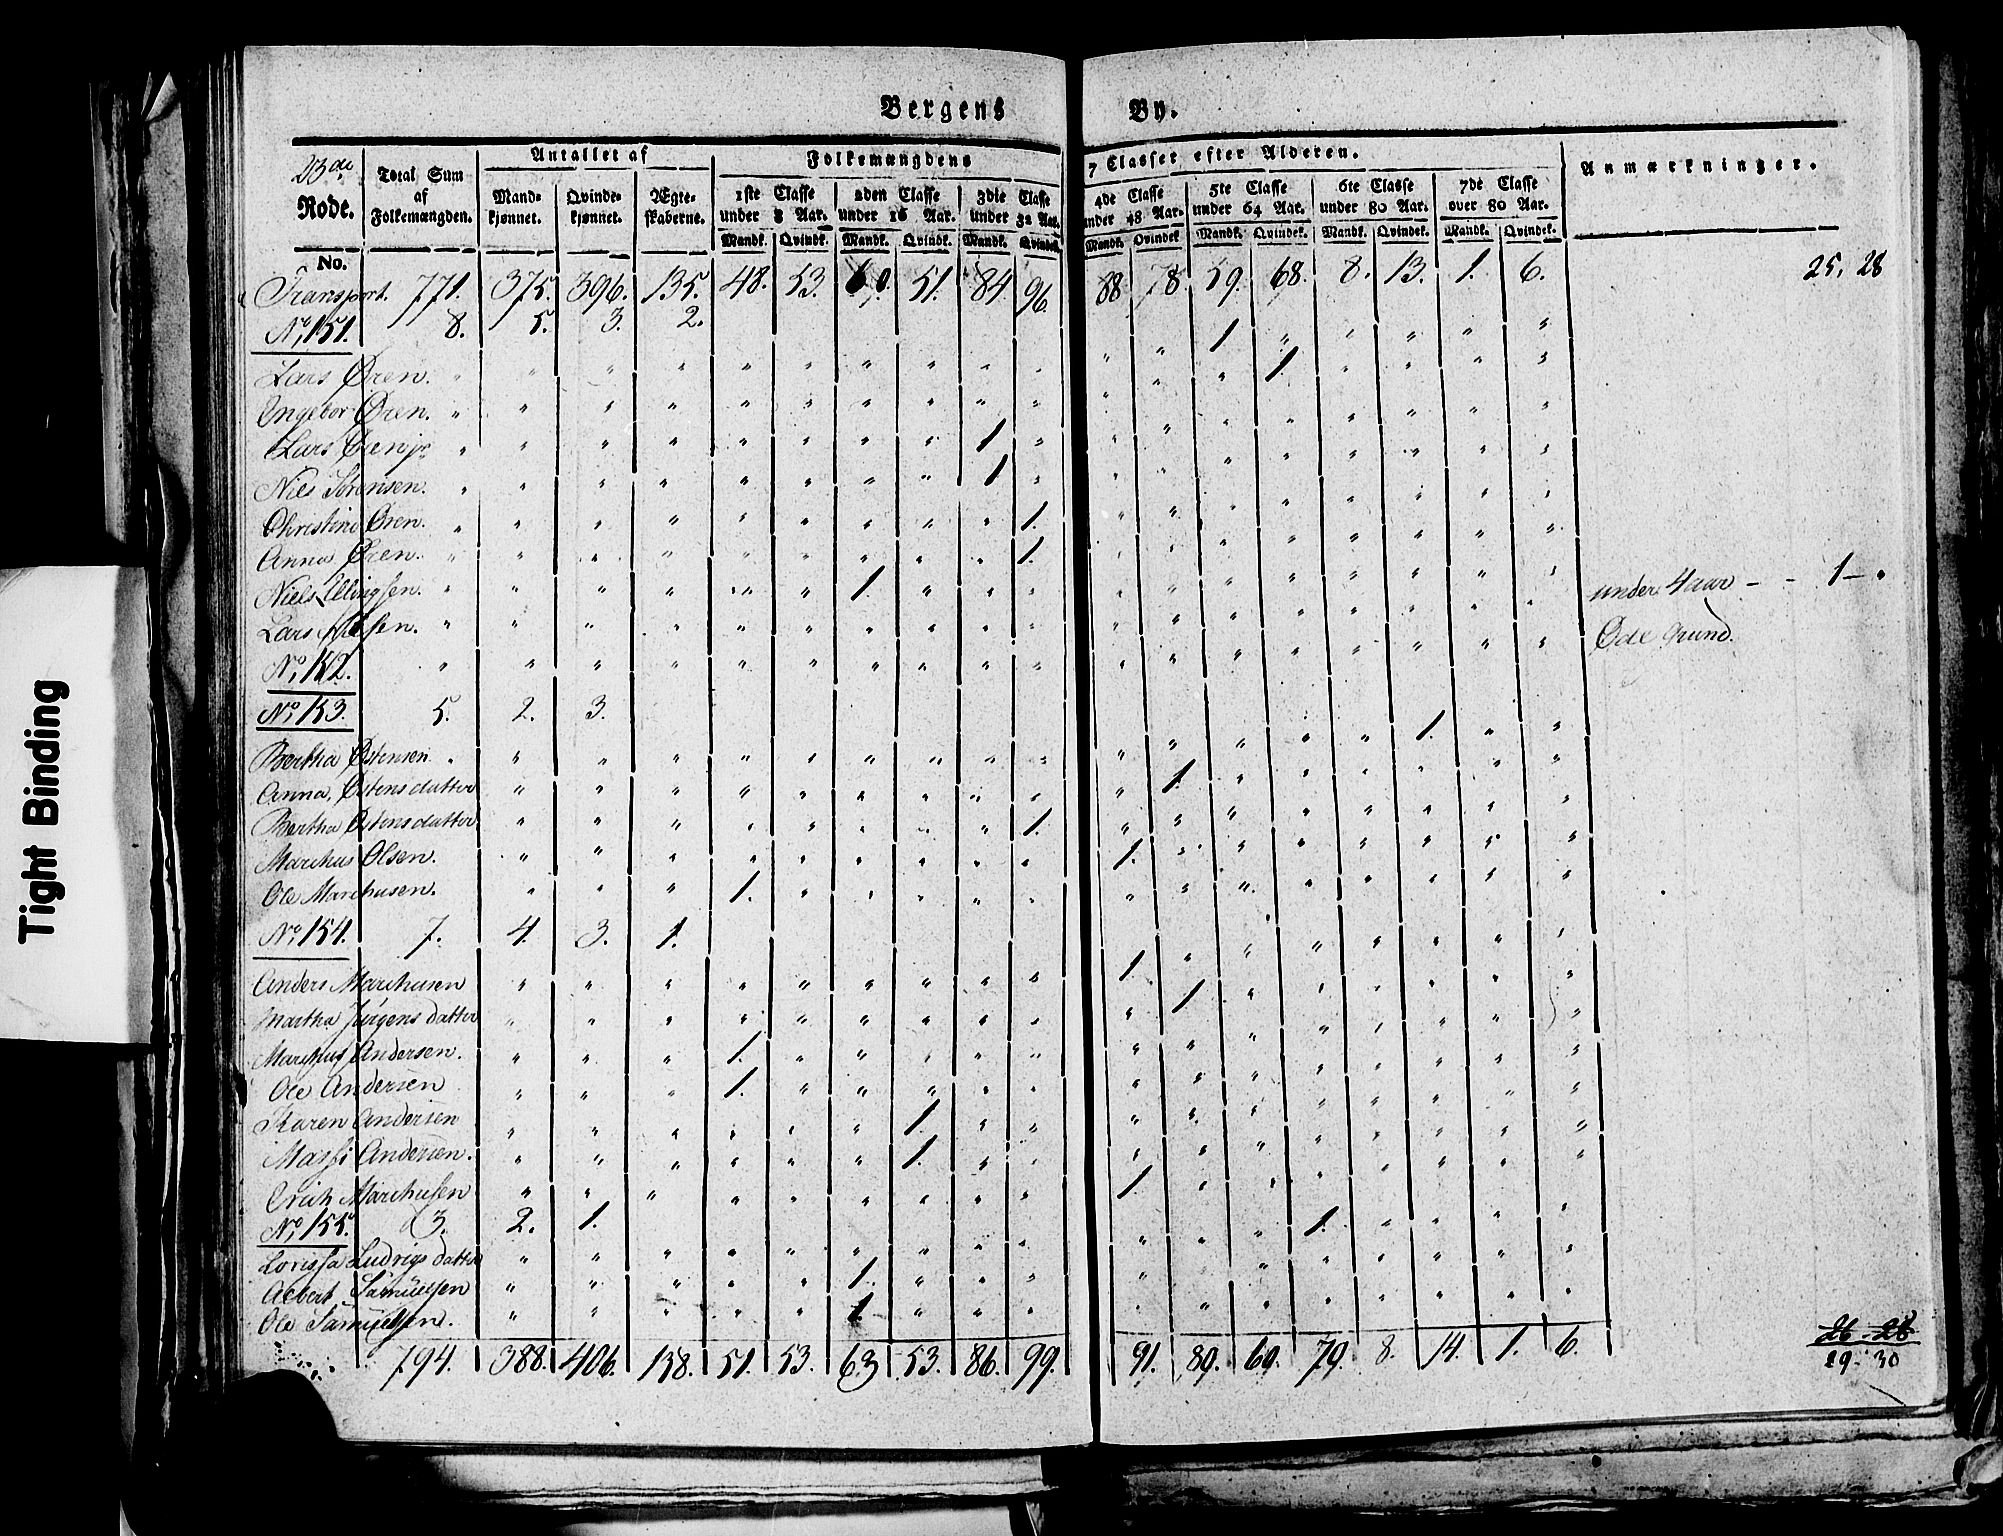 Bergens By.
23de Rode.
Total Sum af Folkemængden.
Antallet af
Mandkjønnet. Qvindekjønnet. Ægteskaberne.
Folkemængdens 7 Classer efter Alderen.
1ste Classe under 8 Aar. 2den Classe under 16 Aar. 3die Classe under 32 Aar. 4de Classe under 48 Aar. 5te Classe under 64 Aar. 6te Classe under 80 Aar. 7de Classe over 80 Aar.
Mandk. Qvindek. Mandk. Qvindek. Mandk. Qvindek. Mandk. Qvindek. Mandk. Qvindek. Mandk. Qvindek. Mandk. Qvindek.
Anmærkninger.
No.
Transport. 771. 375. 396. 135. 48. 53. 60. 51. 84 96. 88 78. 59. 68. 8. 13. 1. 6. 25. 28
No, 151. 8. 5. 3. 2.
Lars Øren. 1.
Ingebor Øren. 1.
Lars Øren jr. 1
Niels Sørensen. 1
Christine Øren. 1.
Anna Øren. 1.
Niels Ellingsen. 1.
Lars Nilsen. under 4 aar - - 1 -
No, 152. Øde Grund.
No, 153. 5. 2. 3.
Bertha Østensen 1.
Anna Østensdatter 1.
Bertha Østensdatter 1.
Marchus Olsen. 1.
Ole Marchusen. 1.
No, 154. 7. 4. 3. 1.
Anders Marchusen 1
Martha Jürgensdatter 1
Marchus Andersen. 1.
Ole Andersen 1.
Karen Andersen 1.
Andersen. 1.
Erich Marchusen 1.
No, 155. 3. 2. 1.
Lovissa Ludvigsdatter 1.
Albert Samüelsen 1.
Ole Samüelsen. 1.
794. 388. 406. 138. 51. 53. 63. 53. 86. 99. 91. 80. 60. 79. 8. 14. 1. 6. 26 - 28
29 - 30
Tight Binding